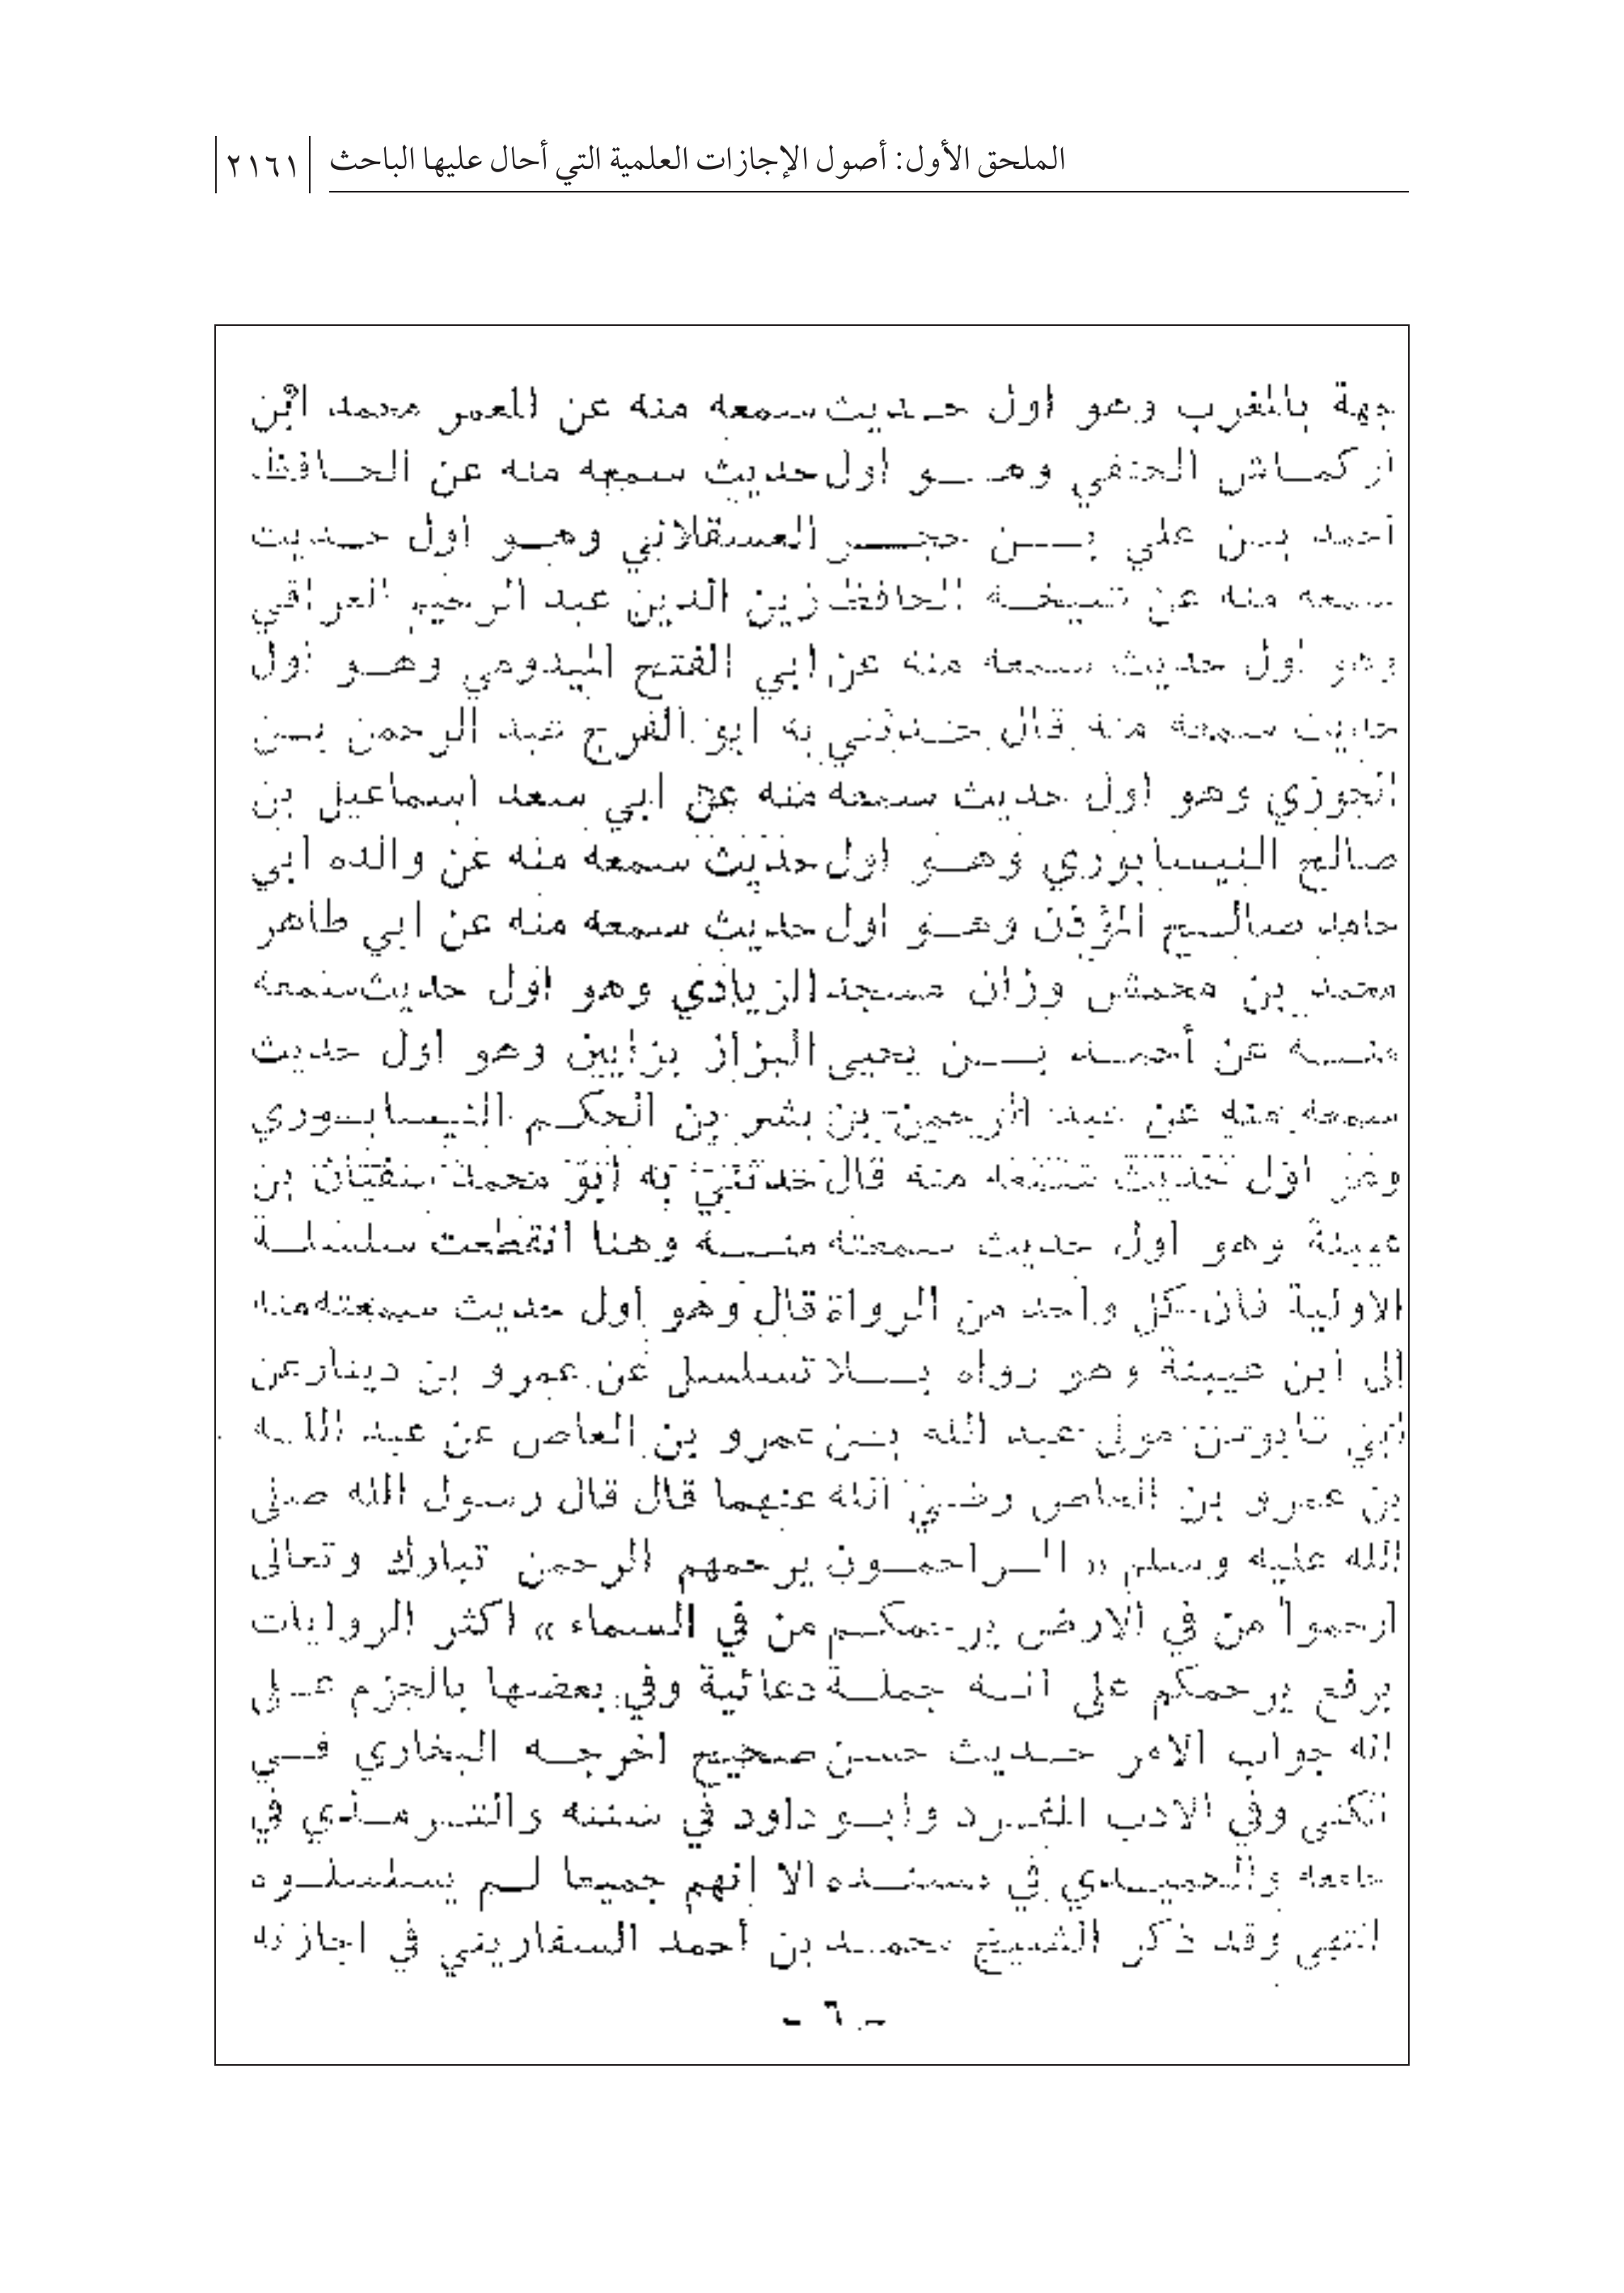 الملحق الأول: أصول الإجازات العلمية التي أحال عليها الباحث ٢١٦١
جهة بالمغرب وهو اول حديث سمعه منه عن المعمر محمد ابن
اركماش الحنفي وهو اول حديث سمعه منه عن الحافظ
احمد بن علي بن حجر العسقلاني وهو اول حديث
سمعه منه عن شيخه الحافظ زين الدين عبد الرحيم العراقي
وهو اول حديث سمعه منه عن ابي الفتح الميدومي وهو اول
حديث سمعه منه قال حدثني به ابو الفرج عبد الرحمن بن
الجوزي وهو اول حديث سمعه منه عن ابي سعد اسماعيل بن
صالح النيسابوري وهو اول حديث سمعه منه عن والده ابي
حامد صالح المؤذن وهو اول حديث سمعه منه عن ابي طاهر
محمد بن محمش وزان مسجد الزيادي وهو اول حديث سمعه
منه عن أحمد بن يحيى البزاز بزايين وهو اول حديث
سمعه منه عن عبد الرحمن بن بشر بن الحكم النيسابوري
وهو اول حديث سمعه منه قال حدثني به ابو محمد سفيان بن
عيينة وهو اول حديث سمعته منه وهنا انقطعت سلسلة
الاولية فان كل واحد من الرواة قال وهو اول حديث سمعته منه
إلى ابن عيينة وهو رواه بلا تسلسل عن عمرو بن دينار عن
ابي قابوس مولى عبد الله بن عمرو بن العاص عن عبد الله
بن عمرو بن العاص رضي الله عنهما قال قال رسول الله صلى
الله عليه وسلم « الراحمون يرحمهم الرحمن تبارك وتعالى
ارحموا من في الارض يرحمكم من في السماء » اكثر الروايات
برفع يرحمكم على انه جملة دعائية وفي بعضها بالجزم على
انه جواب الامر حديث حسن صحيح اخرجه البخاري في
الكنى وفي الادب المفرد وابو داود في سننه والترمذي في
جامعه والحميدي في مسنده الا إنهم جميعا لم يسلسلوه
انتهى وقد ذكر الشيخ محمد بن أحمد السفاريني في اجازته
- ٦ -